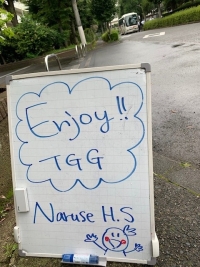 Enjoy!!
TGG
Naruse H.S